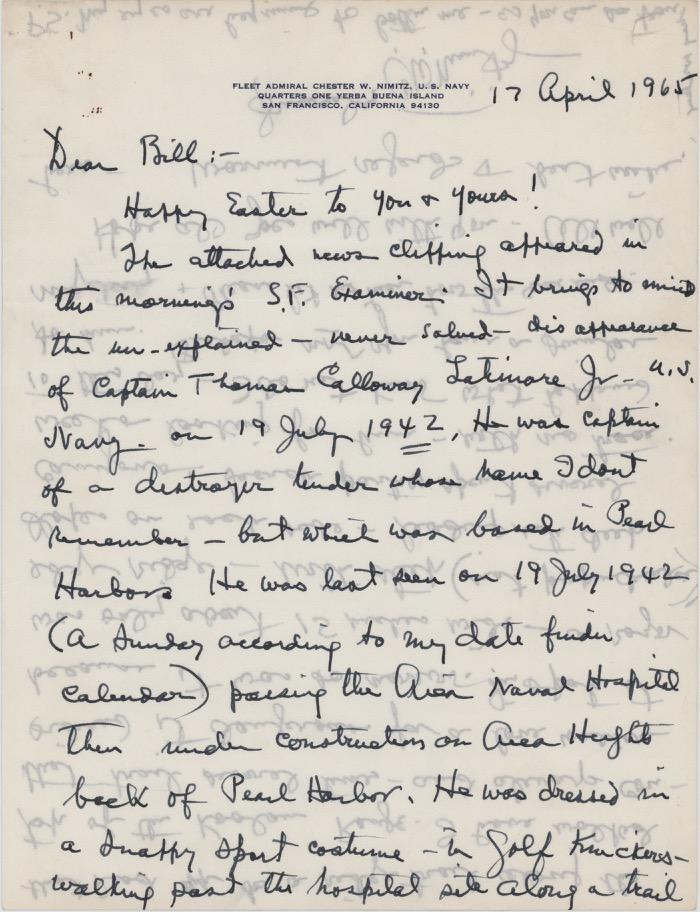 FLEET ADMIRAL CHESTER W. NIMITZ, U. S. NAVY
QUARTERS ONE YERBA BUENA ISLAND
SAN FRANCISCO, CALIFORNIA 94130
17 April 1965
Dear Bill:-
Happy Easter to you & yours!
The attached news clipping appeared in
this morning's S.F. Examiner. It brings to mind
the un-explained - never solved - disappearance
of Captain Thomas Calloway Latimore Jr - U.S.
Navy - on 19 July 1942. He was captain
of a destroyer tender whose name I dont
remember - but which was based in Pearl
Harbor. He was last seen on 19 July 1942
(a Sunday according to my date finder
calendar) passing the Aiea Naval Hospital
then under construction on Aiea Heights
back of Pearl Harbor. He was dressed in
a snappy sport costume - in golf knickers -
walking past the hospital site along a trail